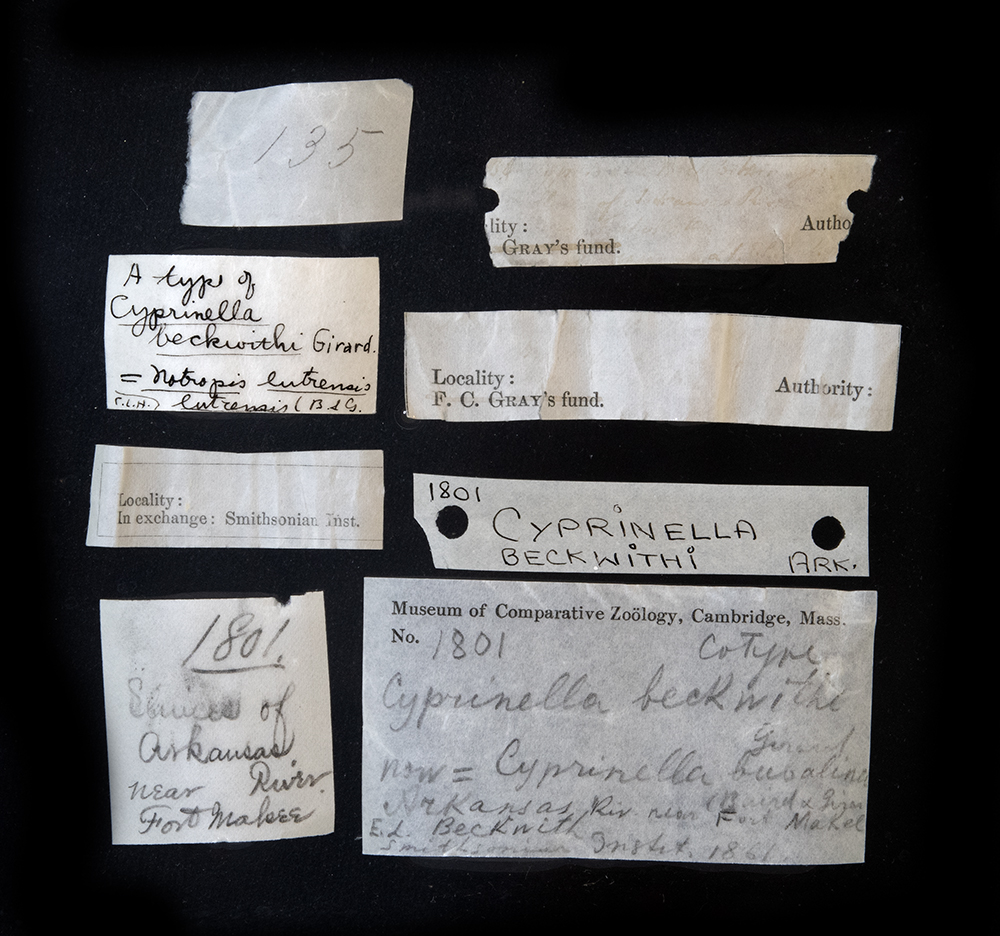 135
lity: Autho
GRAY's fund.
A type of
Cyprinella
beckwithi Girard.
= Notropis lutrensis
lutrensis (B & G.
Locality: Authority:
F. C. GRAY's fund.
Locality:
In exchange: Smithsonian Inst.
1801
CYPRINELLA
BECKWITHI ARK.
1801.
Sluices of
Arkansas
River.
near
Fort Makee
Museum of Comparative Zoölogy, Cambridge, Mass.
No. 1801 Cotype
Cyprinella beckwithi
Girard
now = Cyprinella bubalina
(Baird & Girar
Arkansas Riv near Fort Makee
E.L. Beckwith
Smithsonian Instit. 1861